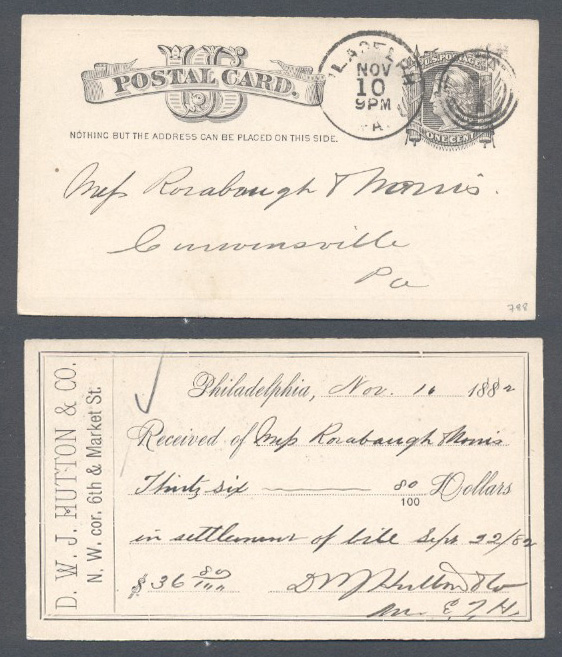 US
POSTAL CARD.
NOTHING BUT THE ADDRESS CAN BE PLACED ON THIS SIDE.
LADEL
NOV
10
9PM
PA.
U.S. POSTAGE
ONE CENT
1
Mess Rorabaugh & Morris.
Curwensville
Pa
788
D. W. J. HUTTON & CO.
N. W. cor. 6th & Market St.
Philadelphia, Nov. 10 1882
Received of Mess Rorabaugh & Morris
Thirty six 80/100 Dollars
in settlement of bill Sept 22/82
$ 36 80/100 DWJ Hutton & Co
E. J. H.